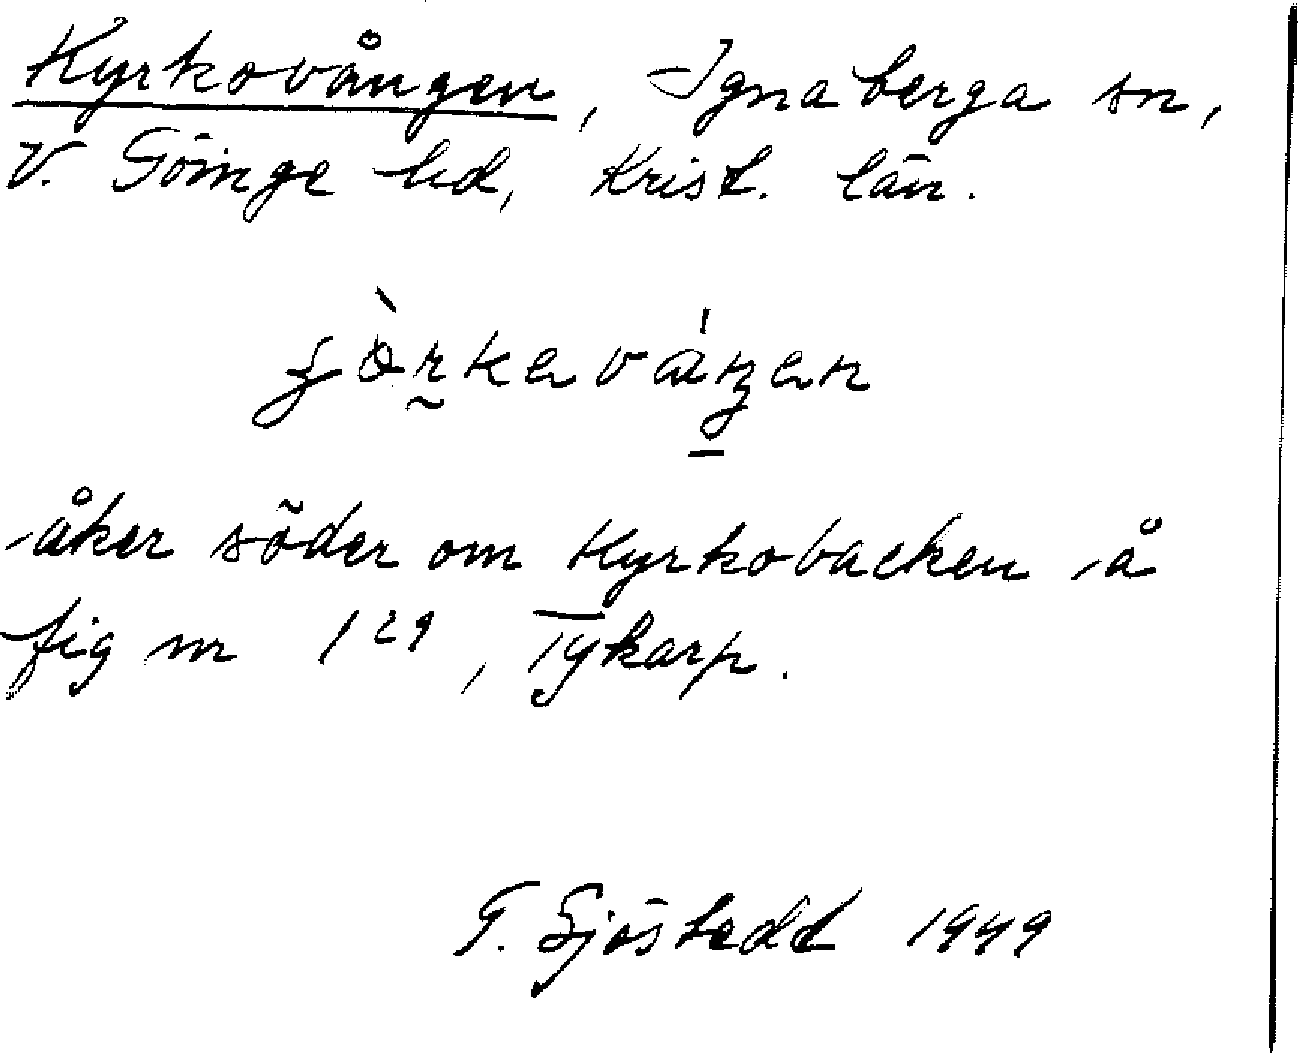 Kyrkovången, Ignaberga sn,
V. Göinge hd, Krist. län.
åker söder om Kyrkobacken å
fig nr 1²⁹, Tykarp.
G. Sjöstedt 1949